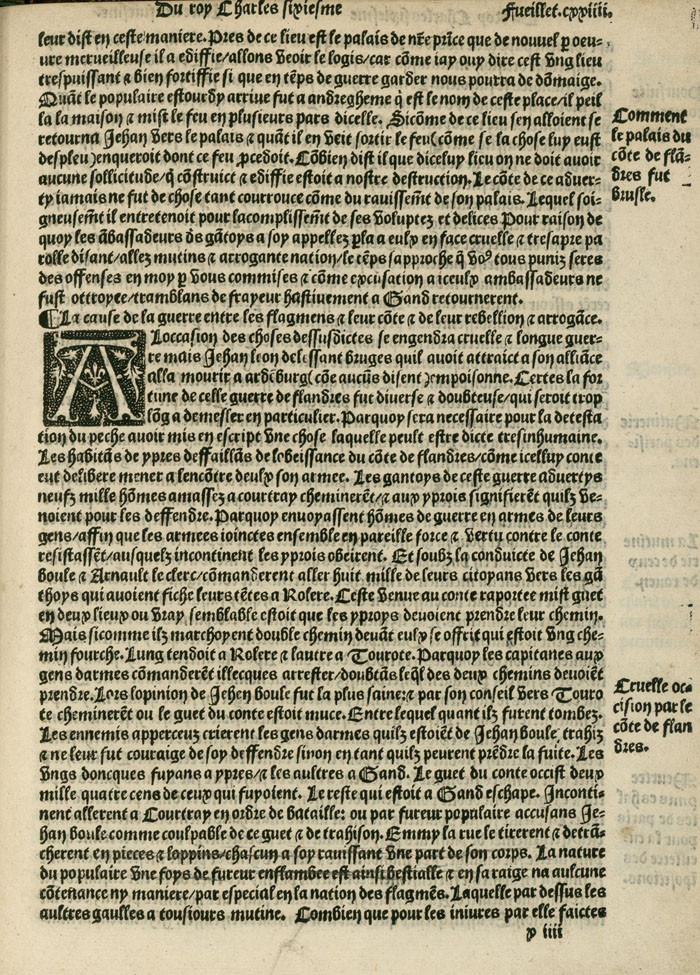 Du roy Charles sixiesme
Fueillet.cxxiiii.
leur dist en ceste maniere. Pres de ce lieu est le palais de nr̄e prīce que de nouuel p oeu-
ure merueilleuse il a ediffie/allons veoir le logis/car cōme iay ouy dire cest vng lieu
trespuissant a bien fortiffie si que en tēps de guerre garder nous pourra de dōmaige.
Quāt le populaire estourdy arriue fut a andregheme q̄ est le nom de ceste place/il peil
la la maison & mist le feu en plusieurs pars dicelle. Sicōme de ce lieu sen alloient se
retourna Jehan vers le palais & quāt il en veit sortir le feu(cōme se la chose luy eust
despleu)enqueroit dont ce feu ꝓcedoit. Cōbien dist il que diceluy lieu on ne doit auoir
aucune sollicitude/q̄ cōstruict & ediffie estoit a nostre destruction. Le cōte de ce aduer-
ty iamais ne fut de chose tant courrouce cōme du rauissemēt de son palais. Lequel soi-
gneusemēt il entretenoit pour lacomplissemēt de ses voluptez et delices Pour raison de
quoy les ābassadeurs ds gātoys a soy appellez ꝑla a eulx en face cruelle & tresapre pa
rolle disant/allez mutins & arrogante nation/le tēps sapproche q̄ vo⁹ tous puniz seres
des offenses en moy ꝑ vous commises & cōme excusation a iceulx ambassadeurs ne
fust ottroyee/tramblans de frayeur hastiuement a Gand retournerent.
¶La cause de la guerre entre les flagmens & leur cōte & de leur rebellion & arrogāce.
A Loccasion des choses dessusdictes se engendra cruelle & longue guer-
re mais Jehan leon delessant bruges quil auoit attraict a son alliāce
alla mourir a ardēburg(cōe aucūs disent)empoisonne. Certes la for
tune de celle guerre de flandres fut diuerse & doubteuse/qui seroit trop
lōg a demesler en particulier. Parquoy sera necessaire pour la detesta
tion du peche auoir mis en escript vne chose laquelle peult estre dicte tresinhumaine.
Les habitās de ypres deffaillās de lobeissance du cōte de flandres/cōme icelluy conte
eut delibere mener a lencōtre deulx son armee. Les gantoys de ceste guerre aduertys
neufz mille hōmes amassez a courtray cheminerēt/& aux yprois signifierēt quilz ve-
noient pour les deffendre. Parquoy enuoyassent hōmes de guerre en armes de leurs
gens/affin que les armees ioinctes ensemble en pareille force & vertu contre le conte
resistassēt/ausquelz incontinent les yprois obeirent. Et soubz la conduicte de Jehan
boule & Arnault le clerc/cōmanderent aller huit mille de leurs citoyans vers les gā
thoys qui auoient fiche leurs tētes a Rolere. Ceste venue au conte raportee mist guet
en deux lieux ou vray semblable estoit que les yproys deuoient prendre leur chemin.
Mais sicomme ilz marchoyent double chemin deuāt eulx se offrit qui estoit vng che-
min fourche. Lung tendoit a Rolere & lautre a Tourote. Parquoy les capitanes aux
gens darmes cōmanderēt illecques arrester/doubtās leq̄l des deux chemins deuoiēt
prendre. Lors lopinion de Jehen boule fut la plus saine:& par son conseil vers Touro
te cheminerēt ou le guet du conte estoit muce. Entre lequel quant ilz furent tombez.
Les ennemis apperceuz crierent les gens darmes quilz estoiēt de Jehan boule trahiz
& ne leur fut couraige de soy deffendre sinon en tant quilz peurent prēdre la fuite. Les
vngs doncques fuyans a ypres/& les aultres a Gand. Le guet du conte occist deux
mille quatre cens de ceux qui fuyoient. Le reste qui estoit a Gand eschape. Inconti-
nent allerent a Courtray en ordre de bataille: ou par fureur populaire accusans Je-
han boule comme coulpable de ce guet & de trahison. Emmy la rue le tirerent & detrā-
cherent en pieces & loppins/chascun a soy rauissant vne part de son corps. La nature
du populaire vne foys de fureur enflambee est ainsi bestialle & en sa raige na aulcune
cōtenance ny maniere/par especial en la nation des flagmēs. Laquelle par dessus les
aultres gaulles a tousiours mutine. Combien que pour les iniures par elle faictes
x iiii
Comment
le palais du
cōte de flā-
dres fut
brusle.
Cruelle oc-
cision par le
cōte de flan
dres.